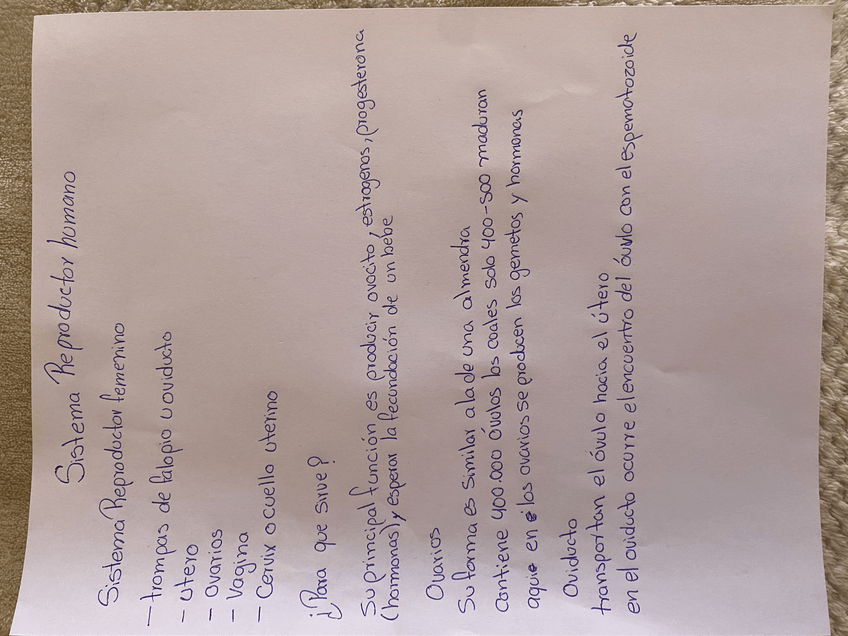 Sistema Reproductor humano
Sistema Reproductor femenino
- trompas de falopio u oviducto
- utero
- ovarios
- Vagina
- Cervix o cuello uterino
¿Para que sirve?
Su principal función es producir ovocito, estrogenos, progesterona
(hormonas) y esperar la fecundación de un bebe
Ovarios
Su forma es similar a la de una almendra
contiene 400.000 óvulos los cuales solo 400-500 maduran
aquie en los ovarios se producen los gemetos y hormonas
Oviducto
transportan el óvulo hacia el útero
en el oviducto ocurre el encuentro del óvulo con el espematozoide